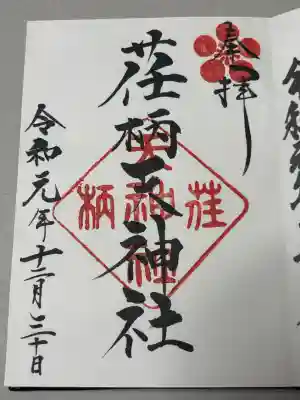 奉拝
荏柄天神社
荏柄天神
令和元年十二月三十日